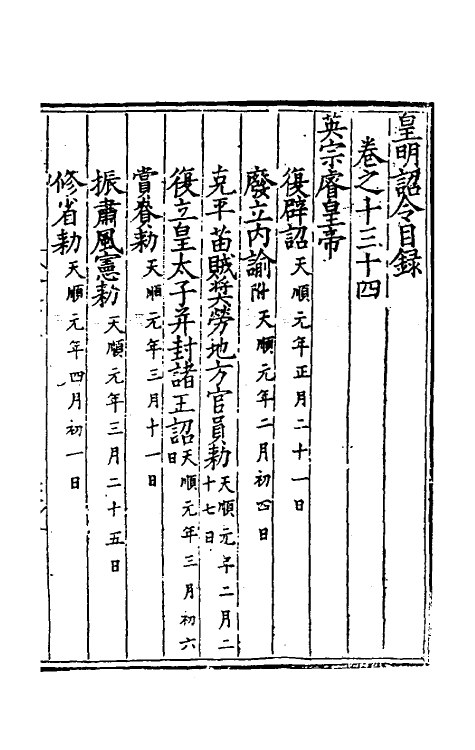 皇明詔令目録
卷之十三十四
英宗睿皇帝
復辟詔天順元年正月二十一日
廢立内諭附天順元年二月初四日
克平苗賊奬勞地方官員勅天順元年二月二十七日
復立皇太子并封諸王詔天順元年三月初六日
賞眷勅天順元年三月十一日
振肅風憲勅天順元年三月二十五日
修省勅天順元年四月初一日